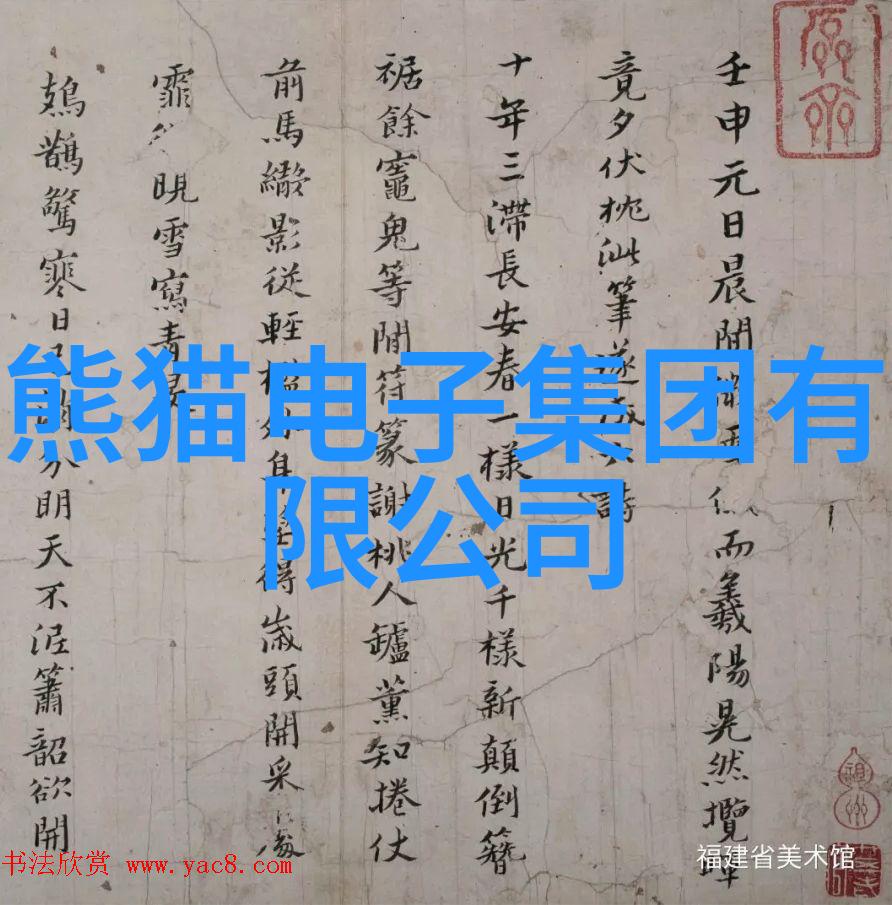 壬申元日晨間而羲陽晃然攬
竟夕伏枕泚筆遂成詩
十年三滯長安春一樣日光千樣新顛倒簪
裾餘竈鬼等閒符篆謝桃人鑪薰知捲仗
前馬影從輕得歲頭開采
霏晛雪寫青
鳷鵲驚寒日明天不泥簫韶欲開
熊猫电子集团有
限公司
福建省美术馆
书法欣赏 www.yac8.com